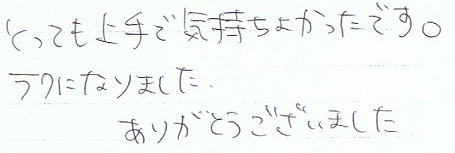 とっても上手で気持ちよかったです。
ラクになりました.
ありがとうございました